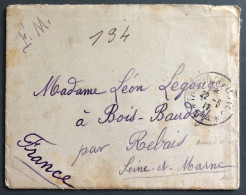 F. M.
134
Madame Léon Legouge
à Bois-Baudry
par Rebais
Seine-et-Marne
France
22-5
17